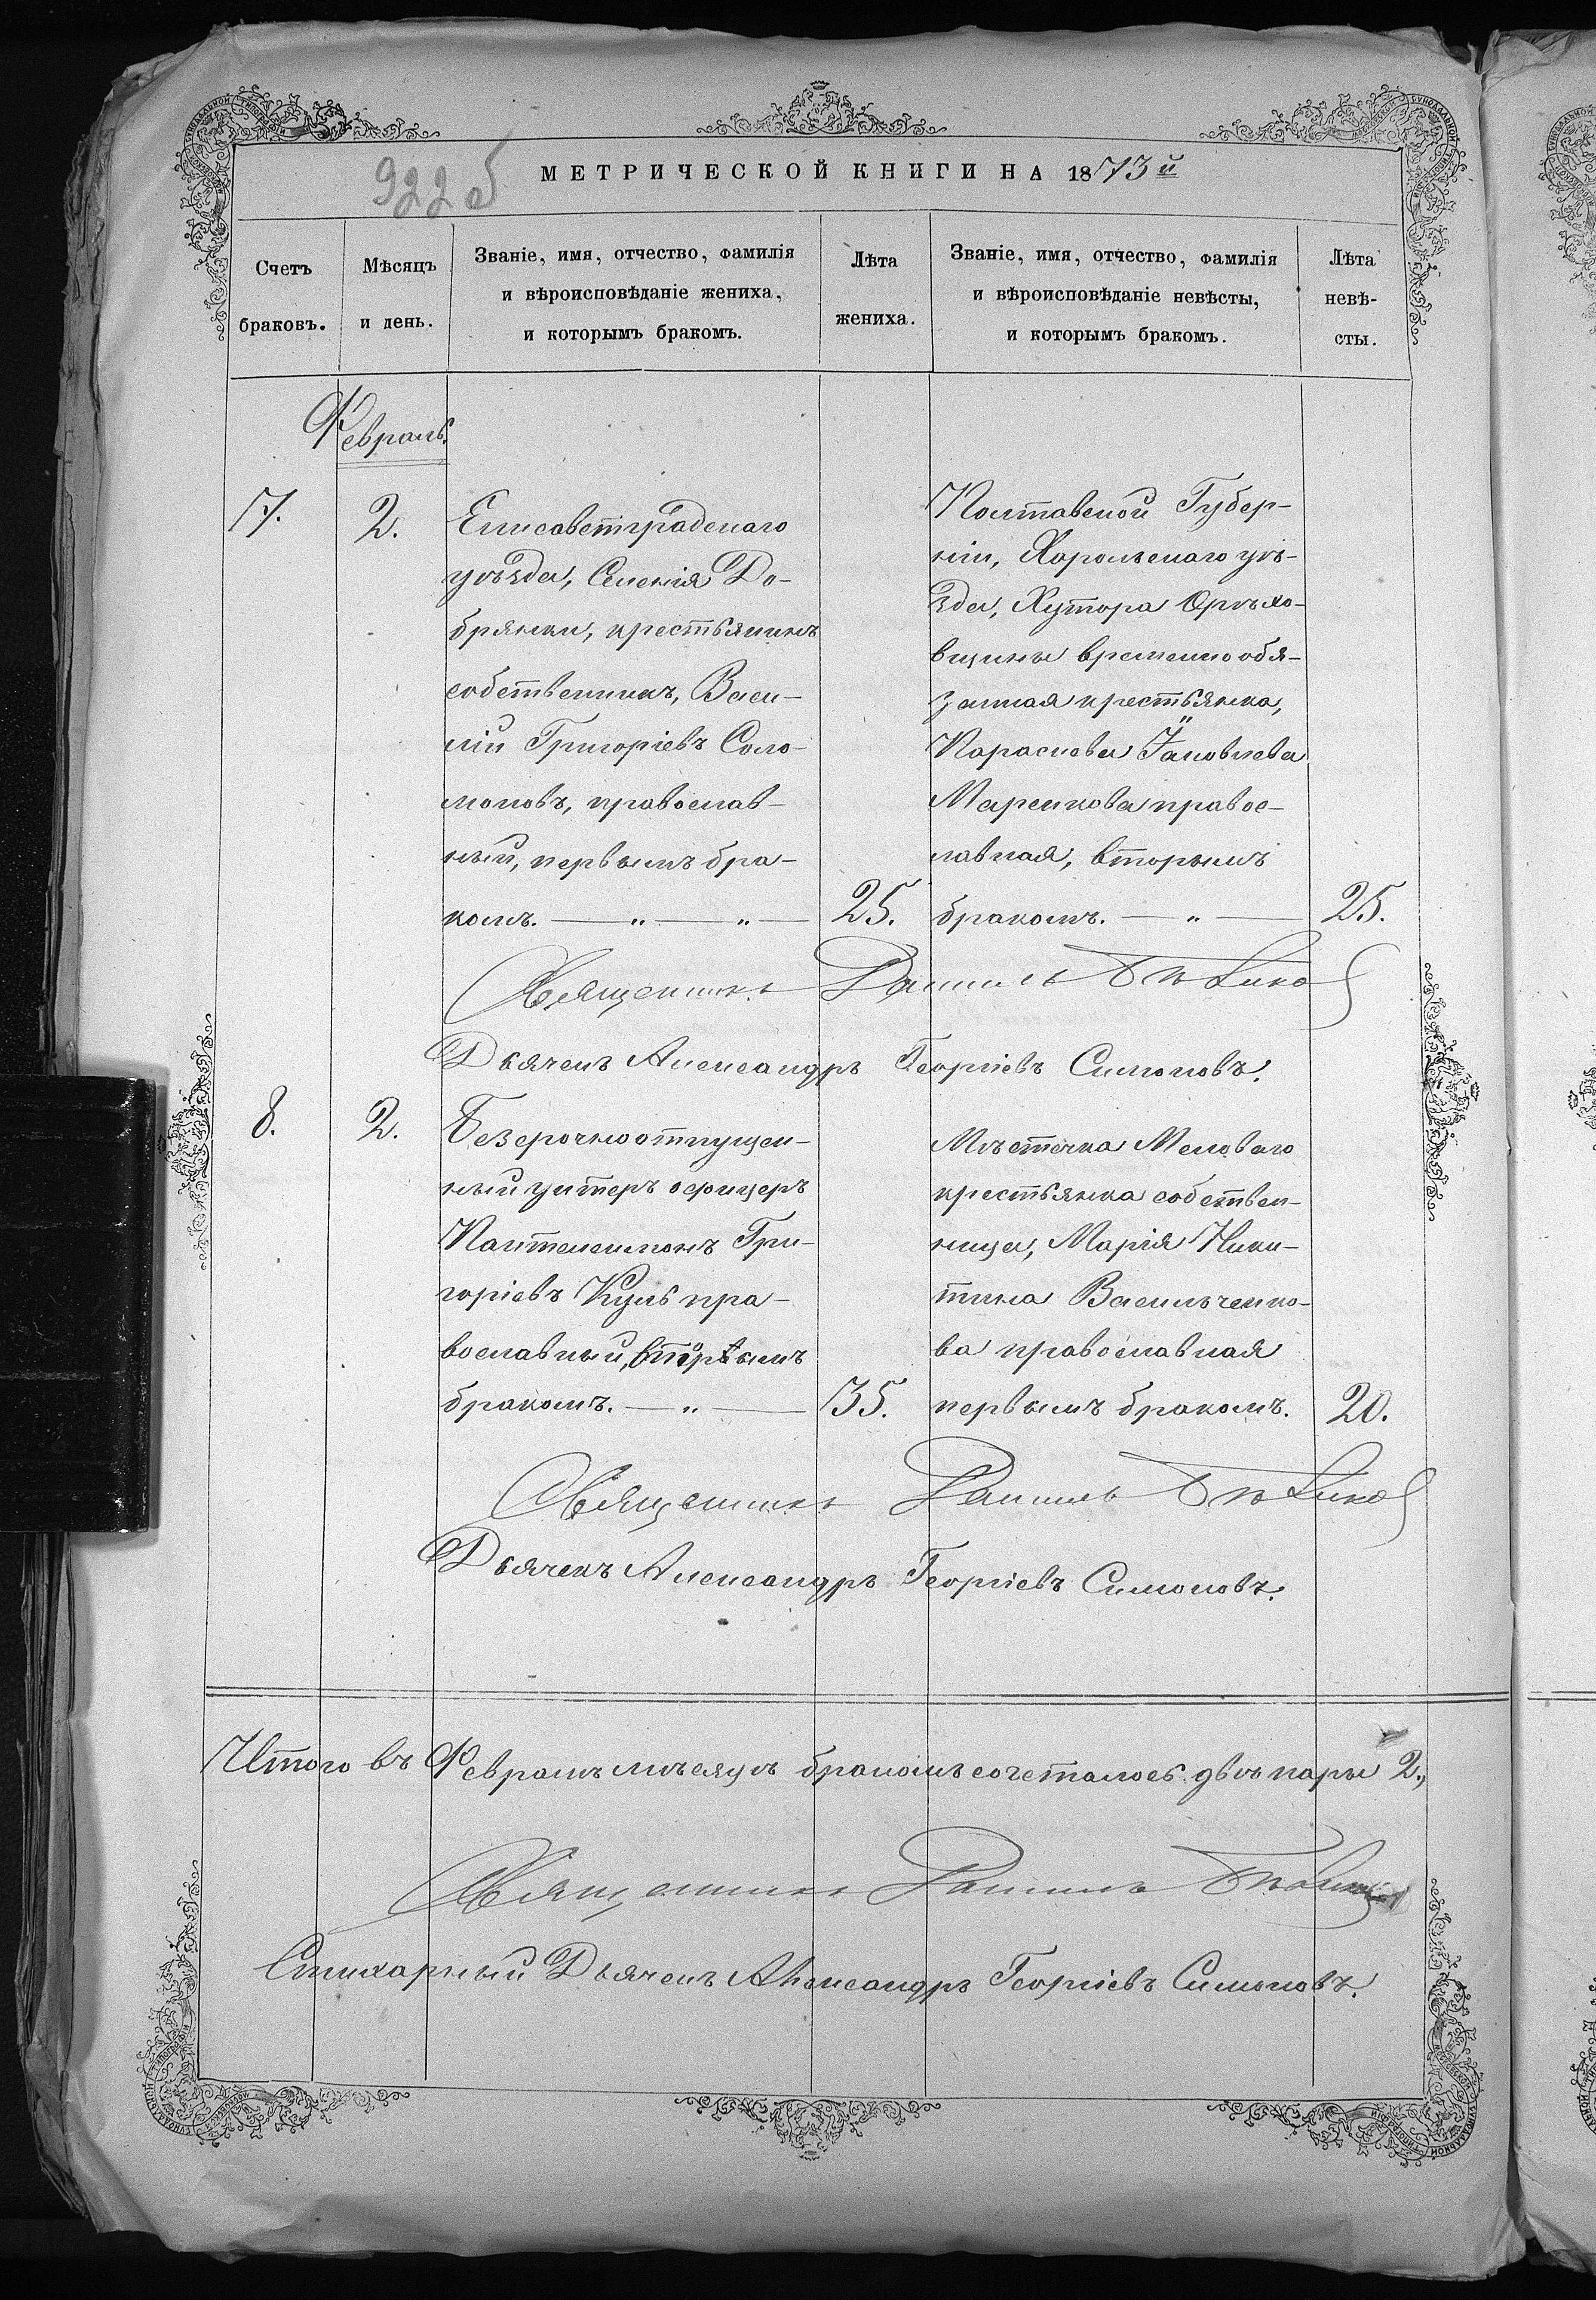 922 об
МЕТРИЧЕСКОЙ КНИГИ НА 1873й
Счетъ
браковъ.
Мѣсяцъ
и день.
Званіе, имя, отчество, фамилія
и вѣроисповѣданіе жениха,
и которымъ бракомъ.
Лѣта
жениха.
Званіе, имя, отчество, фамилія
и вѣроисповѣданіе невѣсты,
и которымъ бракомъ.
Лѣта
невѣ-
сты.
Февраль.
7.
2.
Елисаветградскаго
уѣзда, Селенія До-
брянки, крестьянинъ
собственникъ, Васи-
лій Григоріевъ Соло-
моновъ, православ-
ный, первымъ бра-
комъ. — „ — „ —
25.
Полтавской Губер-
ніи, Харольскаго уѣ-
зда, Хутора Орѣхо-
вщины временно обя-
занная крестьянка,
Параскева Іаковлева
Маренкова правос-
лавная, вторымъ
бракомъ. — „ —
25.
Священникъ Даніилъ
Дьячекъ Александръ Георгіевъ Симоновъ.
8.
2.
Безсрочноотпущен-
ный унтеръ офицеръ
Пантелеимонъ Гри-
горіевъ Куль пра-
вославный, вторымъ
бракомъ. — „ —
35.
Мѣстечка Меловаго
крестьянка собствен-
ница, Марія Ники-
тина Васильченко-
ва православная
первымъ бракомъ.
20.
Священникъ Даніилъ
Дьячекъ Александръ Георгіевъ Симоновъ.
Итого въ Февралѣ мѣсяцѣ бракомъ сочеталось двѣ пары 2.,
Священникъ Даніилъ
Стихарный Дьячекъ Александръ Георгіевъ Симоновъ.